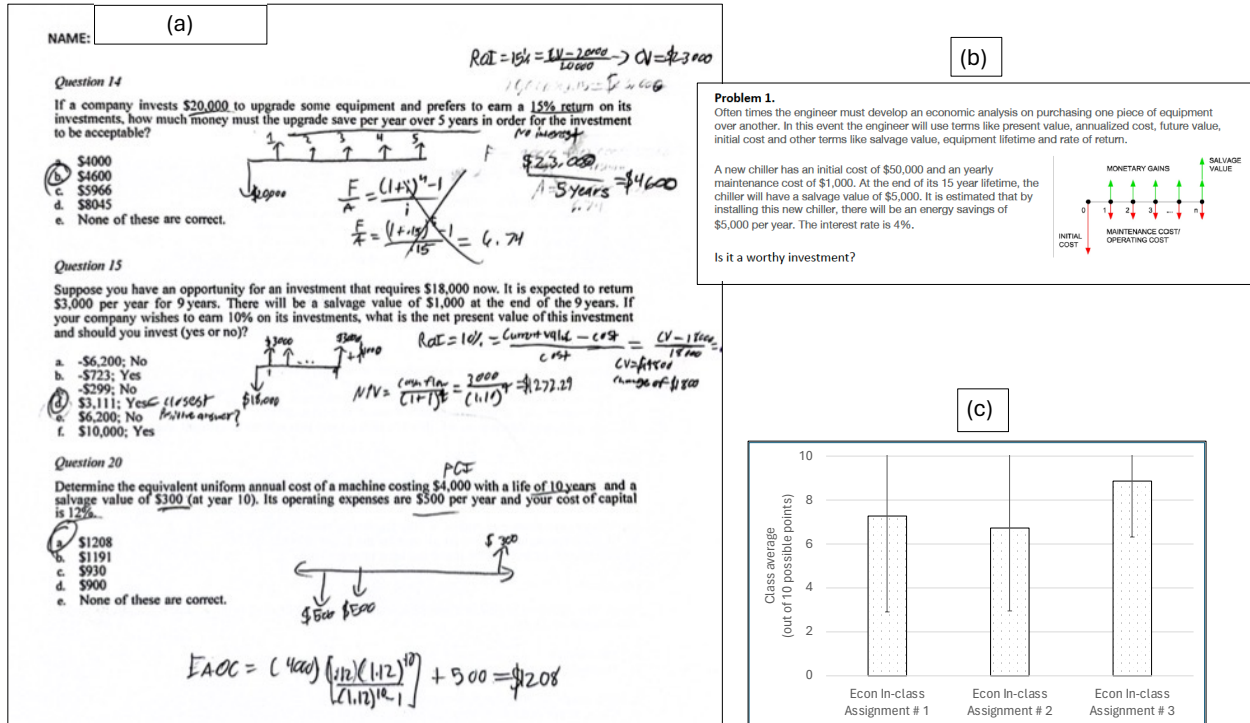 (a)
NAME:
ROI = 15% = CV - 20000 / 20000 -> CV = $23000
Question 14
If a company invests $20,000 to upgrade some equipment and prefers to earn a 15% return on its
investments, how much money must the upgrade save per year over 5 years in order for the investment
to be acceptable?
No interest
1 2 3 4 5
$20,000
a. $4000
b. $4600
c. $5966
d. $8045
e. None of these are correct.
F/A = (1+i)^n - 1 / i
F/A = (1+.15)^5 - 1 / .15 = 6.74
$23,000 / 5 years = $4600
Question 15
Suppose you have an opportunity for an investment that requires $18,000 now. It is expected to return
$3,000 per year for 9 years. There will be a salvage value of $1,000 at the end of the 9 years. If
your company wishes to earn 10% on its investments, what is the net present value of this investment
and should you invest (yes or no)?
$3000 $3000 + $1000
1 9
$18,000
ROI = 10% = Current value - cost / cost = CV - 18000 / 18000 =
CV = $19800
change of $1800
NPV = cash flow / (1+i)^t = 3000 / (1.10)^9 = $1272.29
a. -$6,200; No
b. -$723; Yes
c. -$299; No
d. $3,111; Yes closest
e. $6,200; No positive answer?
f. $10,000; Yes
Question 20
PCI
Determine the equivalent uniform annual cost of a machine costing $4,000 with a life of 10 years and a
salvage value of $300 (at year 10). Its operating expenses are $500 per year and your cost of capital
is 12%.
a. $1208
b. $1191
c. $930
d. $900
e. None of these are correct.
$300
$500 $500
EAOC = (4000) [(.12)(1.12)^10 / (1.12)^10 - 1] + 500 = $1208
(b)
Problem 1.
Often times the engineer must develop an economic analysis on purchasing one piece of equipment
over another. In this event the engineer will use terms like present value, annualized cost, future value,
initial cost and other terms like salvage value, equipment lifetime and rate of return.
A new chiller has an initial cost of $50,000 and an yearly
maintenance cost of $1,000. At the end of its 15 year lifetime, the
chiller will have a salvage value of $5,000. It is estimated that by
installing this new chiller, there will be an energy savings of
$5,000 per year. The interest rate is 4%.
Is it a worthy investment?
SALVAGE
VALUE
MONETARY GAINS
0 1 2 3 ... n
INITIAL
COST
MAINTENANCE COST/
OPERATING COST
(c)
Class average
(out of 10 possible points)
10
8
6
4
2
0
Econ In-class
Assignment # 1
Econ In-class
Assignment # 2
Econ In-class
Assignment # 3